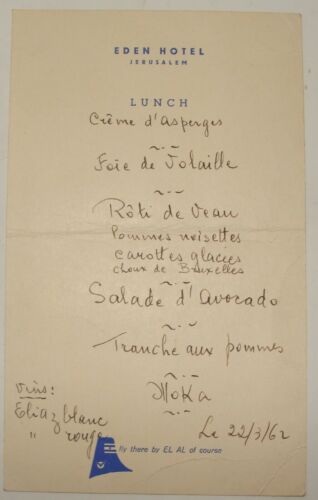 EDEN HOTEL
JERUSALEM
LUNCH
Crème d'asperges
Foie de Volaille
Rôti de Veau
Pommes noisettes
carottes glacies
choux de Bruxelles
Salade d'Avocado
Tranche aux pommes
Moka
Vins:
Eliaz blanc
" rouge
Le 22/3/62
fly there by EL AL of course